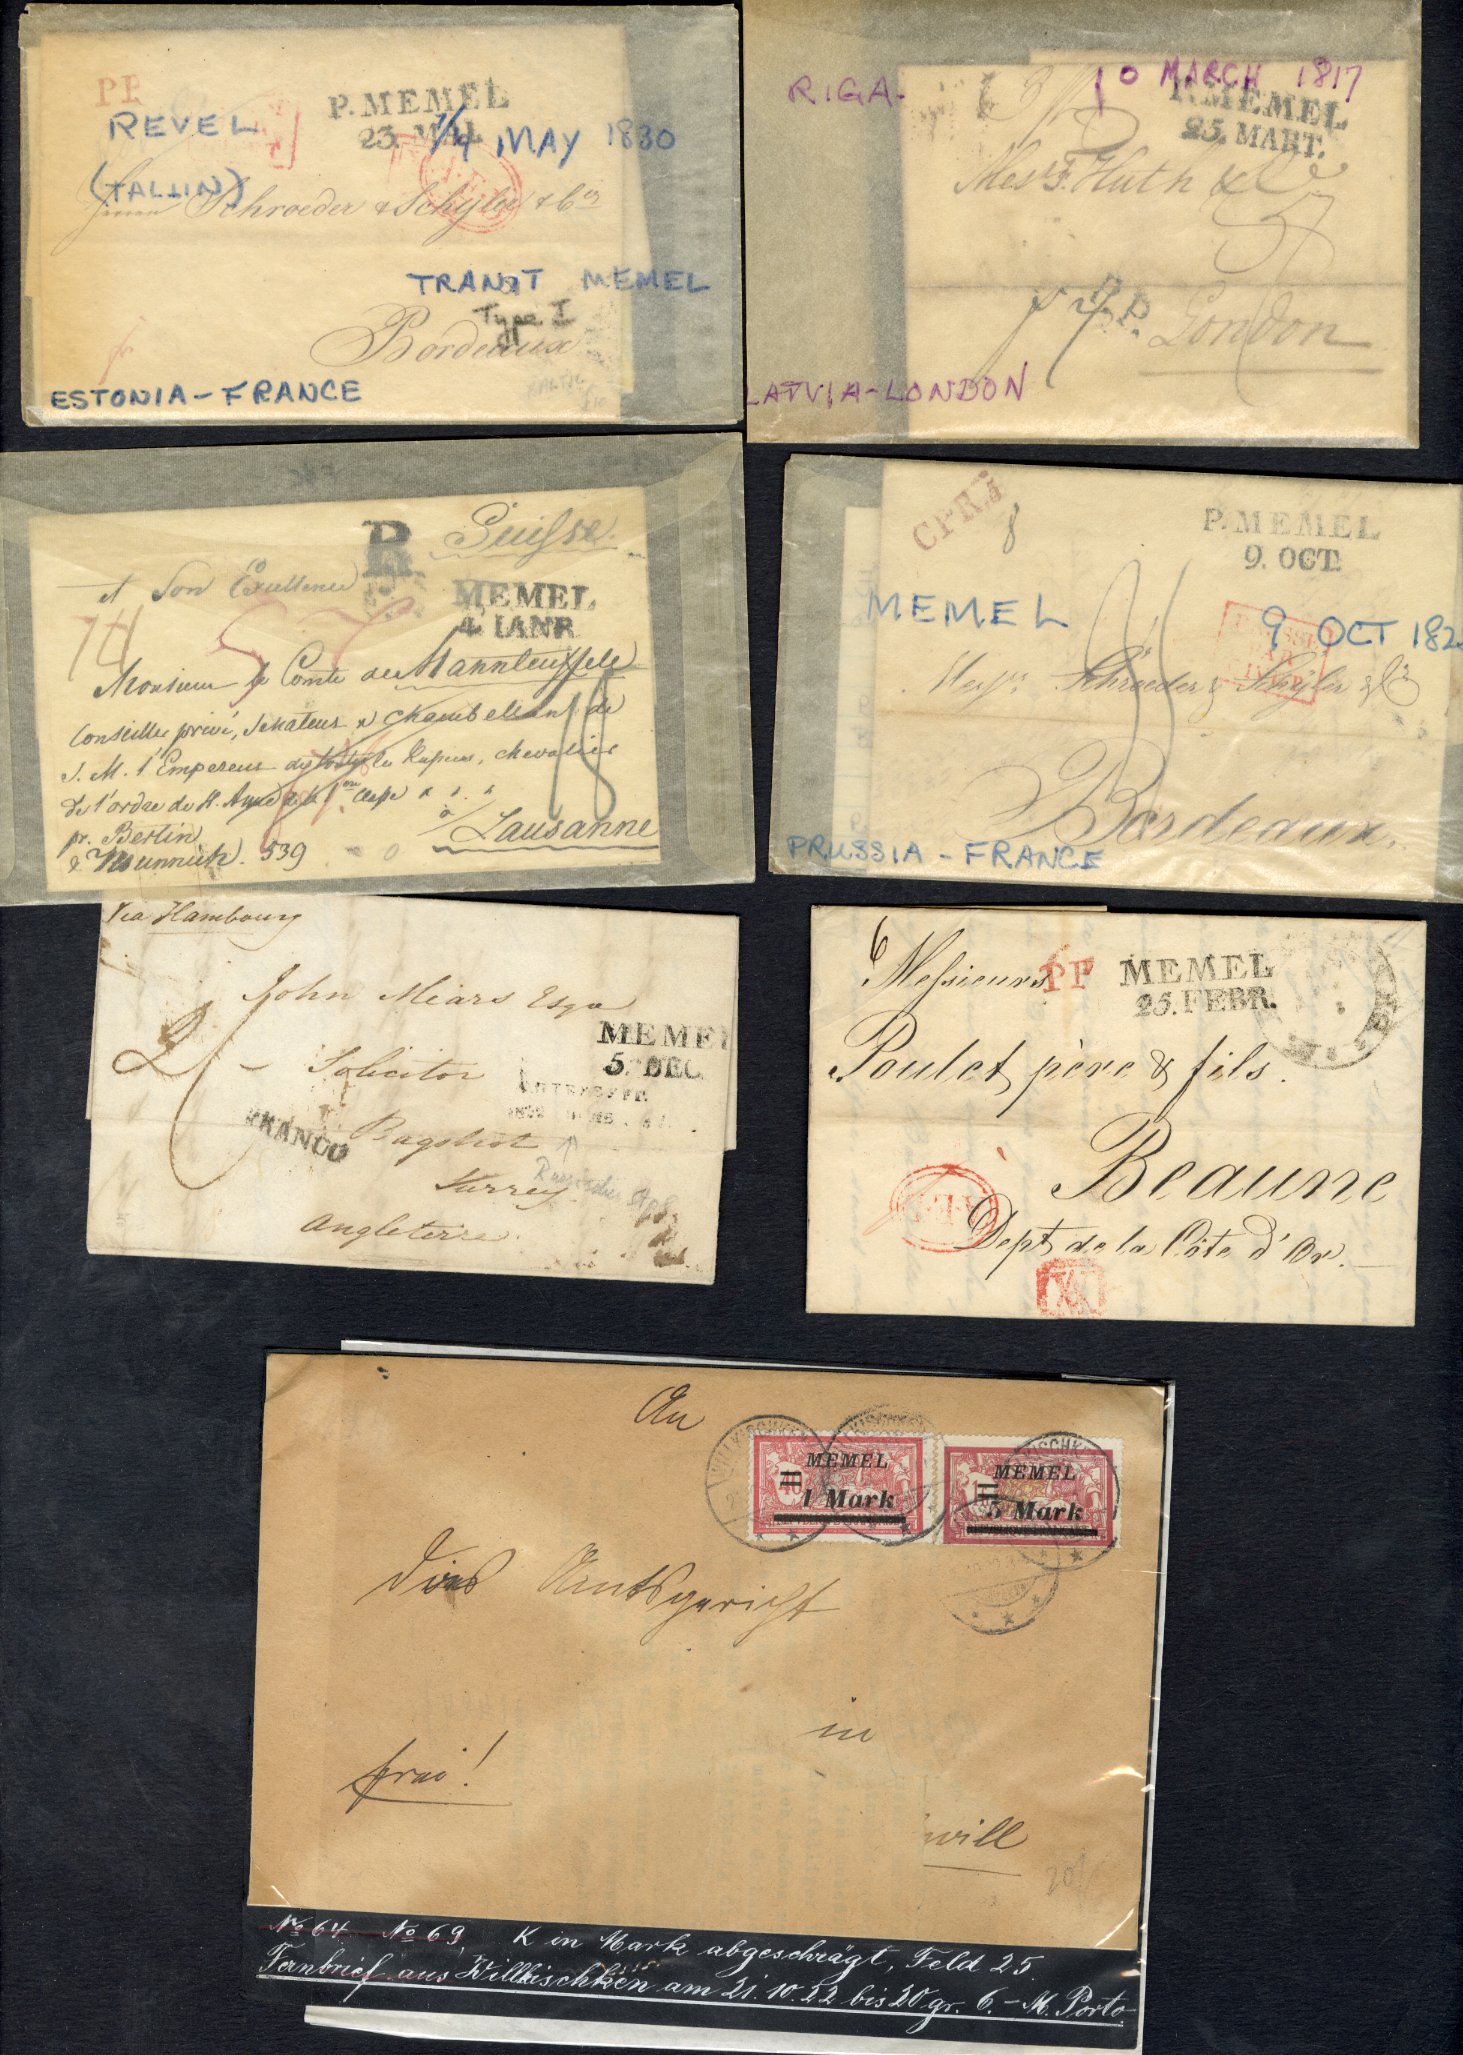 P. MEMEL
23. MAI
REVEL
1/4 MAY 1830
(TALLIN)
Schroeder & Schyler & Co
TRANSIT MEMEL
Type I
Bordeaux
ESTONIA - FRANCE
RIGA - 10 MARCH 1817
P. MEMEL
25. MART.
Mess F. Huth & Co
P.P.
London
LATVIA - LONDON
R
Suisse
A Son Exellence
MEMEL
4 IANR
Monsieur le Comte de Mannteuffele
Conseiller privé, Senateur & Chambellan de
S. M. l'Empereur de toutes les Rufsies, chevalier
de l'ordre de St. Anne de la 1re Clafse
à
Lausanne
pr. Berlin
& Munnich. 539
CPR.5
8
P. MEMEL
9. OCT.
MEMEL
9 OCT 182
Messrs Schroeder & Schyler & Co
Bordeaux.
PRUSSIA - FRANCE
Via Hambourg
John Mears Esqr
MEMEL
5. DEC.
Solicitor
FRANCO
Bagshot
Surrey
Angleterre
6
Messieurs
PP
MEMEL
25. FEBR.
Poulet père & fils.
Beaune
Dept de la Côte d'Or.
An
MEMEL
1 Mark
MEMEL
5 Mark
das Amtsgericht
in
frei!
No 64 No 69 K in Mark abgeschrägt, Feld 25
Fernbrief aus Willkischken am 21.10.22 bis 20 gr. 6.- M. Porto